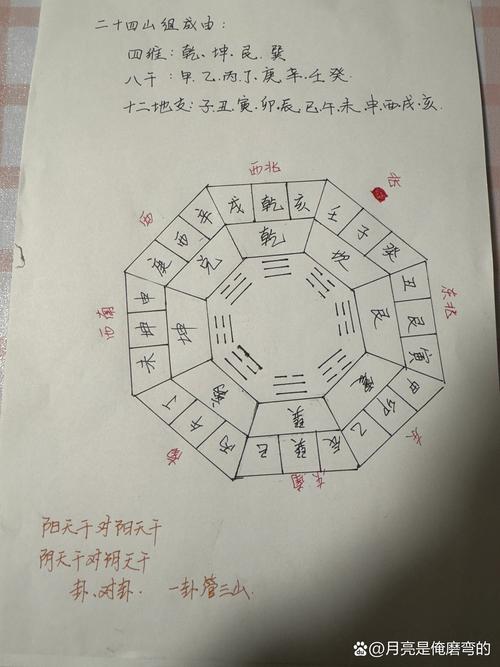 二十四山组成由:
四维:乾、坤、艮、巽
八干:甲.乙.丙.丁.庚.辛.壬癸.
十二地支:子.丑.寅.卯.辰.巳.午.未.申.酉.戌.亥.
西北
北
东北
东
东南
南
西南
西
戌 乾 亥
壬 子 癸
丑 艮 寅
甲 卯 乙
辰 巽 巳
丙 午 丁
未 坤 申
庚 酉 辛
乾
坎
艮
震
巽
离
坤
兑
阳天干对阳天干
阴天干对阴天干
卦、对卦. 一卦管三山.
Bai百家号/@月亮是俺磨弯的